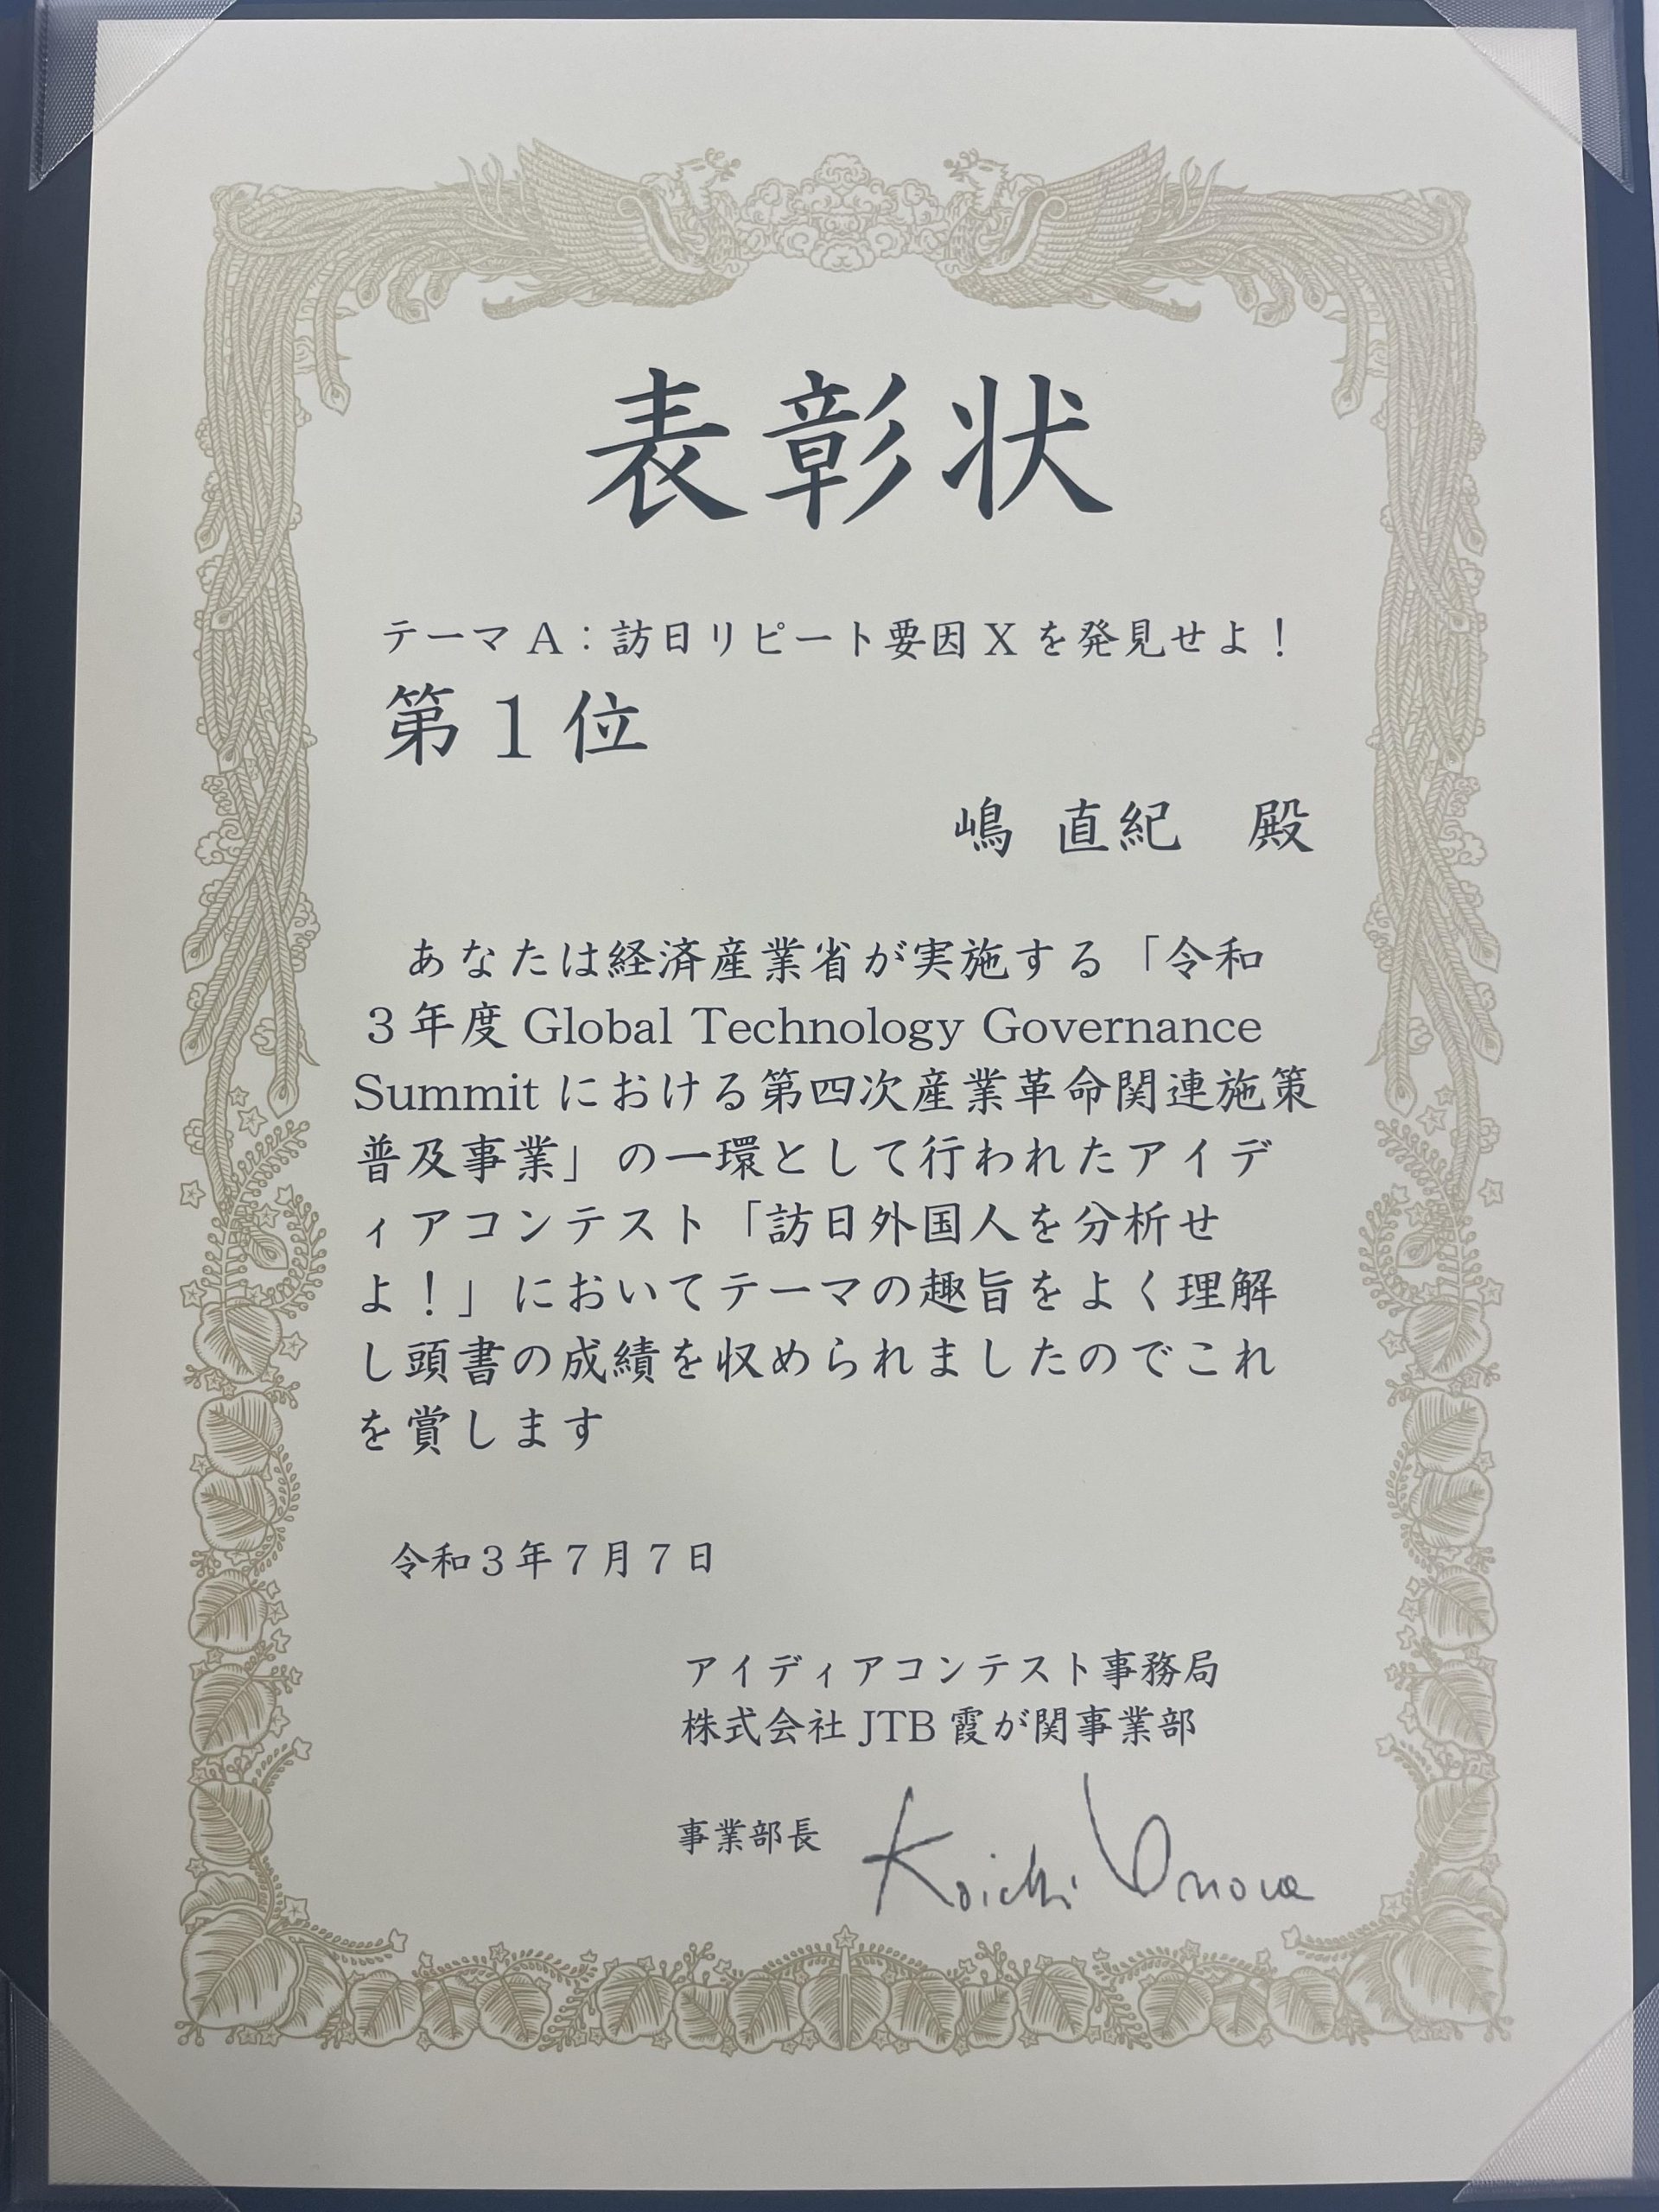 表彰状
テーマA：訪日リピート要因Xを発見せよ！
第1位
嶋 直紀　殿
あなたは経済産業省が実施する「令和
3年度 Global Technology Governance
Summit における第四次産業革命関連施策
普及事業」の一環として行われたアイデ
ィアコンテスト「訪日外国人を分析せ
よ！」においてテーマの趣旨をよく理解
し頭書の成績を収められましたのでこれ
を賞します
令和3年7月7日
アイディアコンテスト事務局
株式会社JTB霞が関事業部
事業部長 Koichi